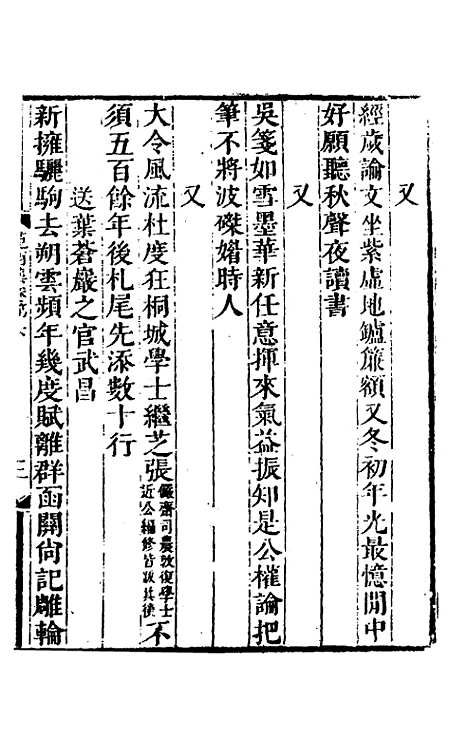 又
經歲論文坐紫虛地鑪簾額又冬初年光最憶閒中
好願聽秋聲夜讀書
又
吳箋如雪墨華新任意揮來氣益振知是公權論把
筆不將波磔媚時人
又
大令風流杜度狂桐城學士繼芝張儼齋司農敦復學士近公編修皆跋其後不
須五百餘年後札尾先添數十行
送葉蒼巖之官武昌
新擁驪駒去朔雲頻年幾度賦離群函關尙記雕輪
三